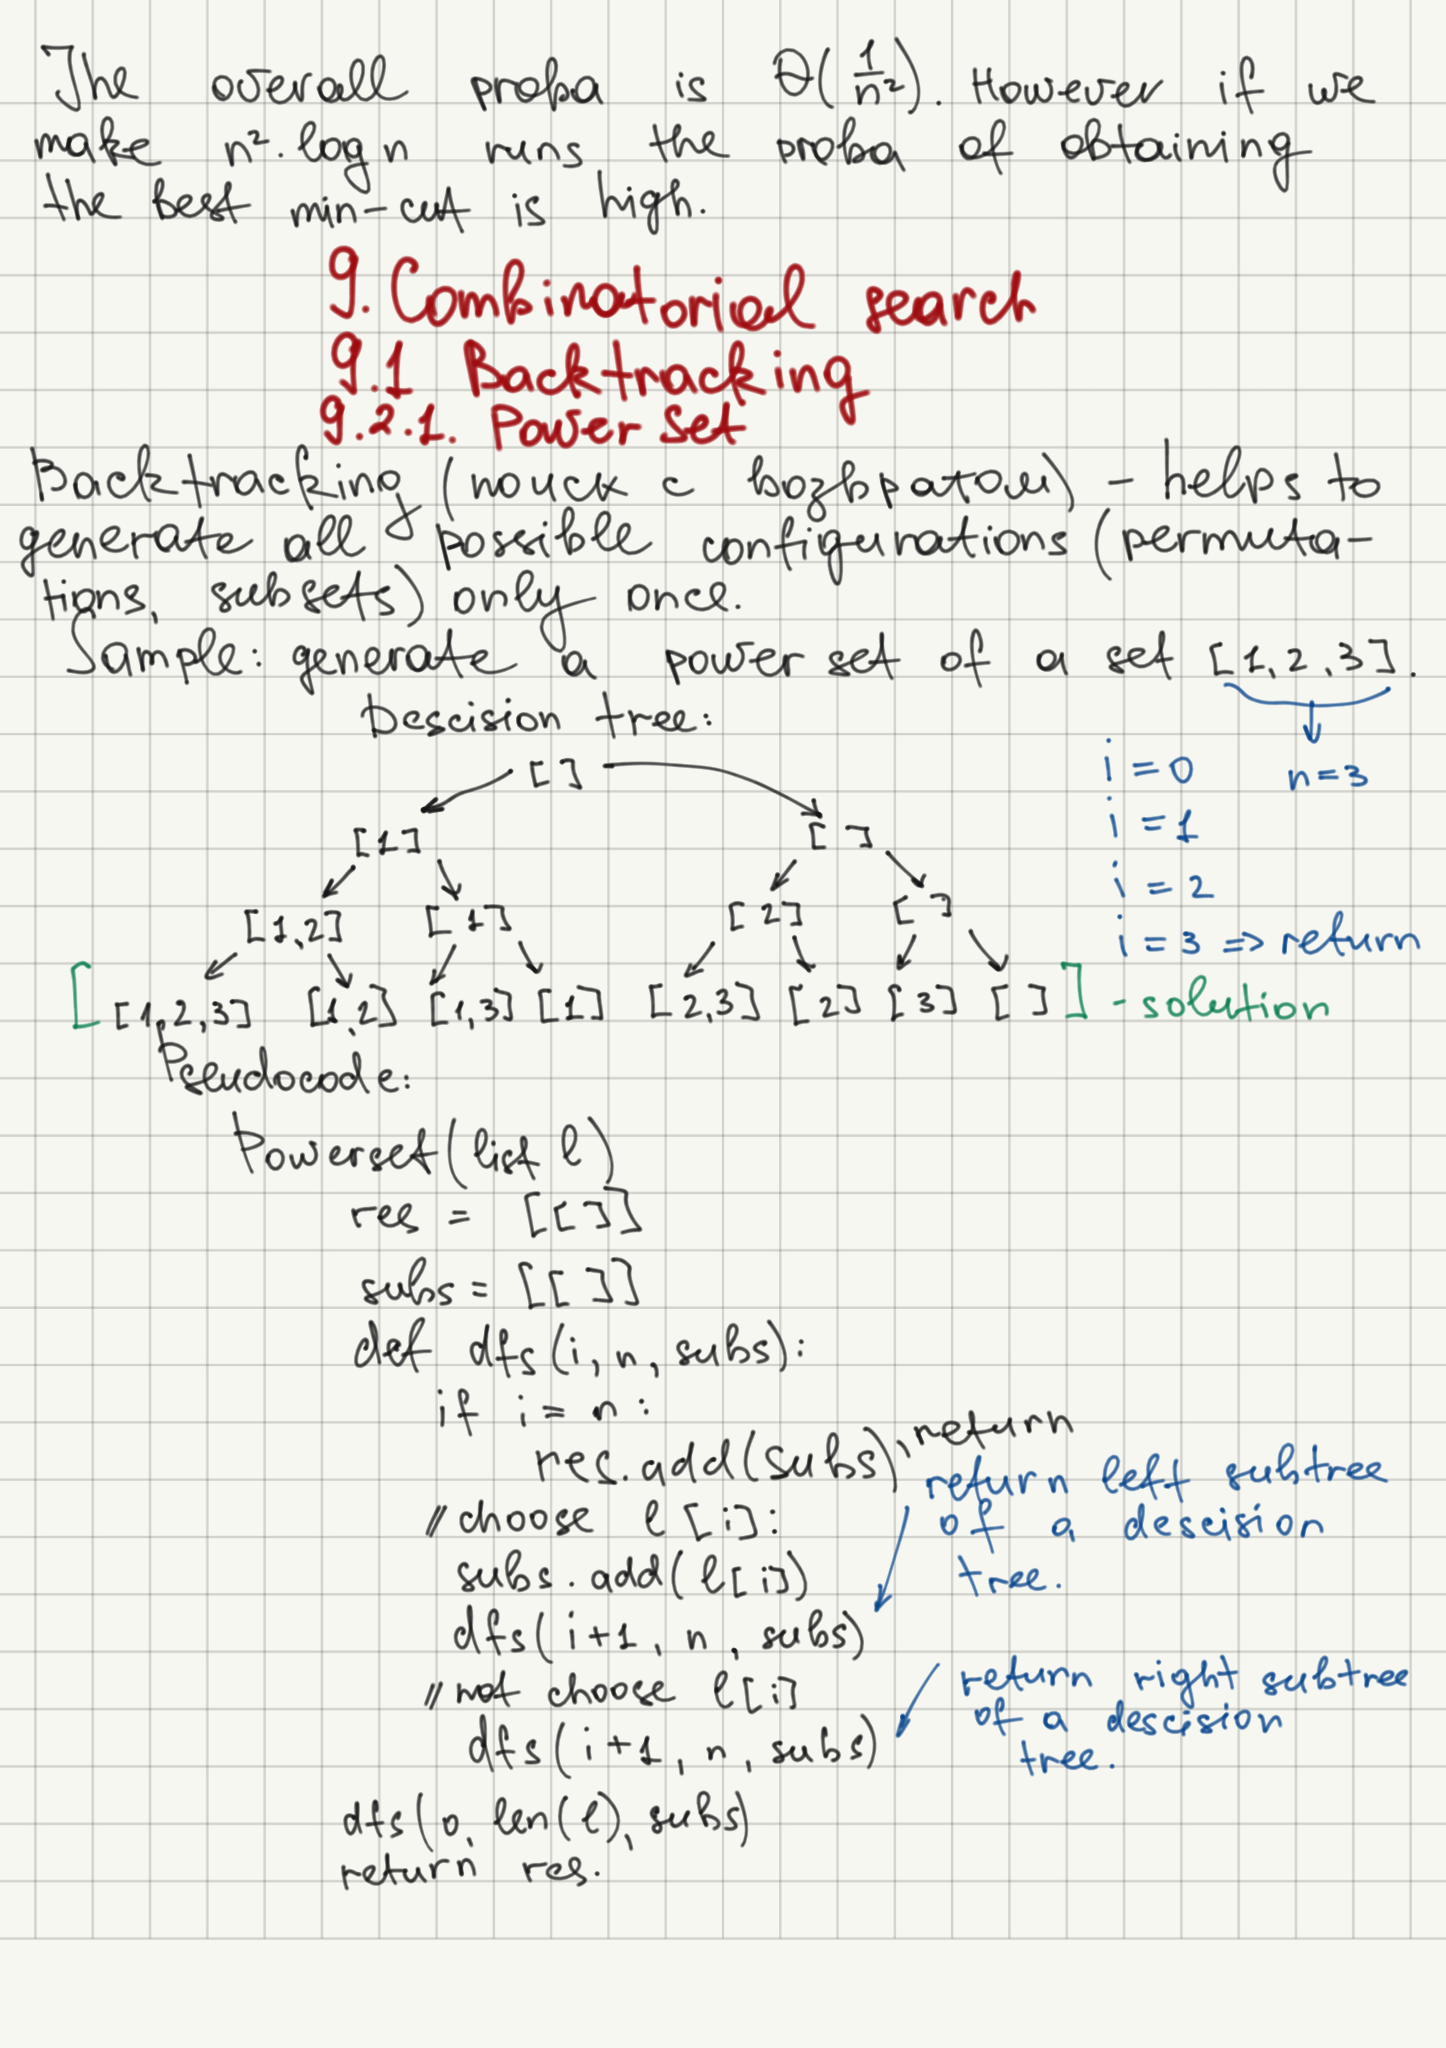 The overall proba is Θ(1/n²). However if we
make n²·log n runs the proba of obtaining
the best min-cut is high.
9. Combinatorial search
9.1 Backtracking
9.2.1. Power set
Backtracking (поиск с возвратом) - helps to
generate all possible configurations (permuta-
tions, subsets) only once.
Sample: generate a power set of a set [1,2,3].
Descision tree:
[ ]
i = 0 n=3
[1] [ ]
i = 1
i = 2
[1,2] [1] [2] [ ]
i = 3 => return
[ [1,2,3] [1,2] [1,3] [1] [2,3] [2] [3] [ ] ] - solution
Pseudocode:
Powerset(list l)
res = [[ ]]
subs = [[ ]]
def dfs(i, n, subs):
if i = n :
res.add(subs), return
return left subtree
of a descision
tree.
// choose l[i]:
subs.add(l[i])
dfs(i+1, n, subs)
// not choose l[i]
return right subtree
of a descision
tree.
dfs(i+1, n, subs)
dfs(0, len(l), subs)
return res.